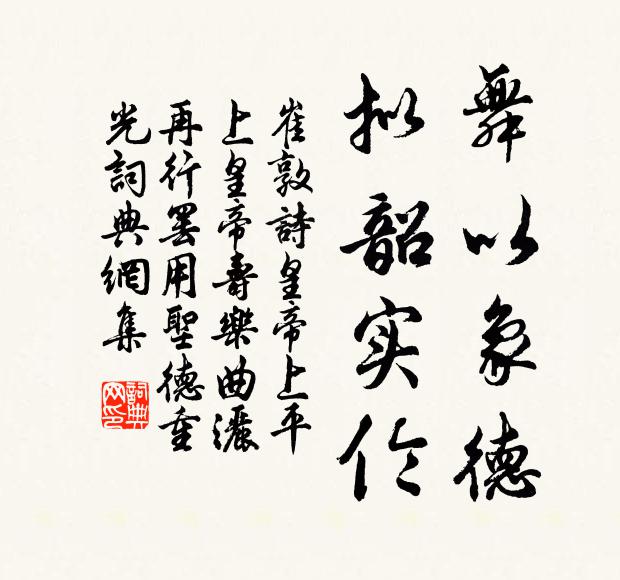 舞以象德
拟韶实伦
崔敦詩皇帝上平
上皇帝壽樂曲灑
再行罢用聖德重
光詞典網集
詞典網印